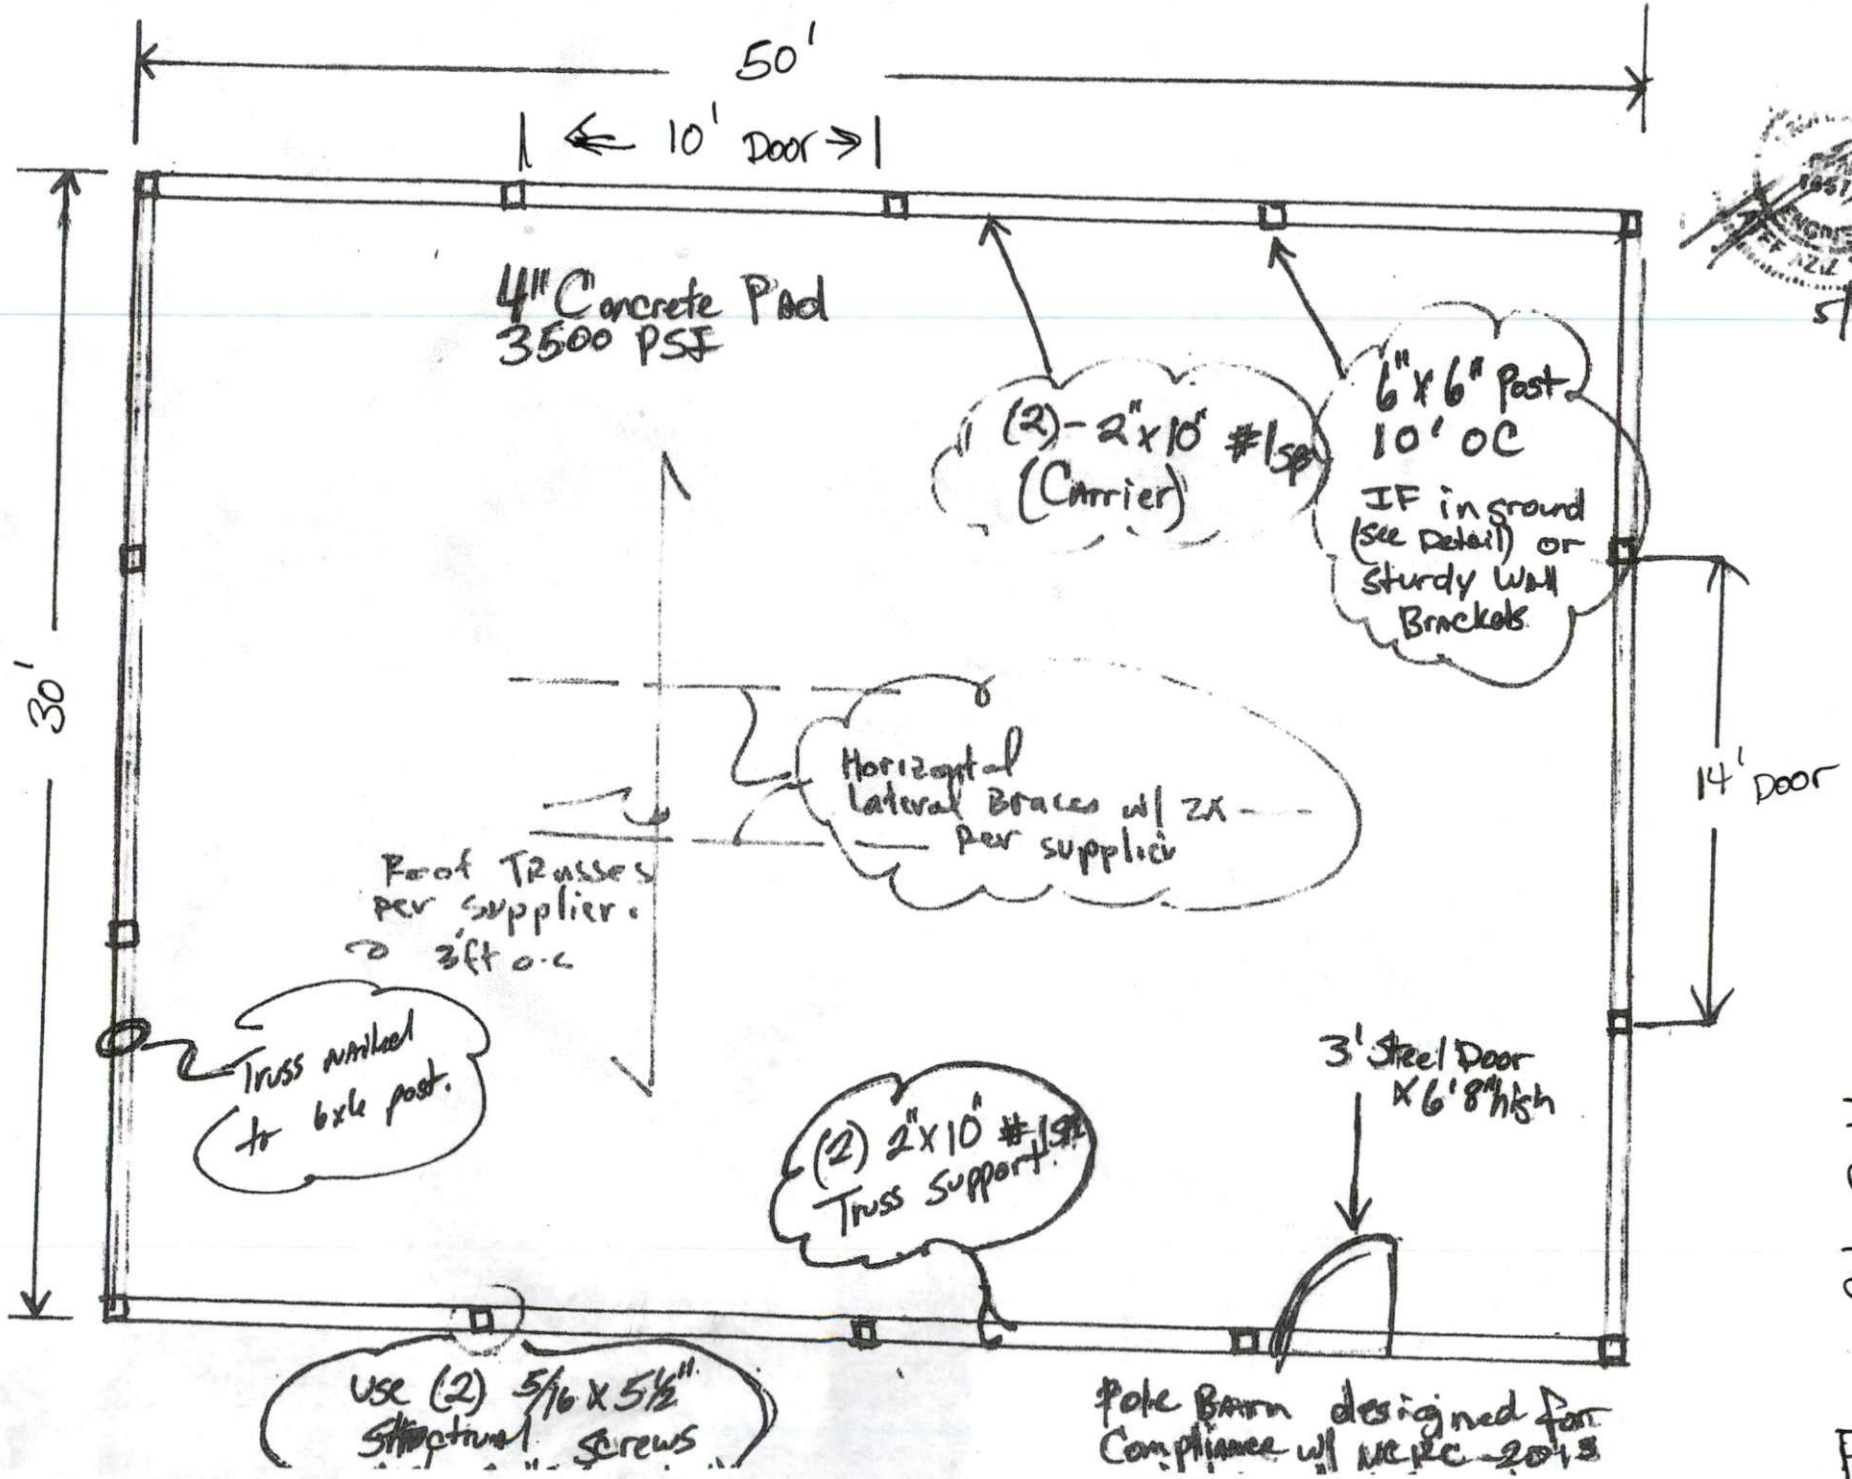 50'
10' Door
4" Concrete PAd
3500 PSI
(2)- 2"x10" #1SP
(CArrier)
6"x6" Post
10' OC
IF in ground
(see Detail) or
Sturdy WAll
BrAckets
30'
14' Door
Horizontal
Lateral Braces w/ 2x
Per supplier
Roof TRusses
per supplier.
3'ft o.c
Truss nAiled
to 6x6 post.
(2) 2"x10"
Truss Support.
3' Steel Door
x 6' 8" high
use (2) 5/16 x 5½"
structural screws
Pole BArn designed for
CompliAnce w/ NCRC
ENGINE
5/